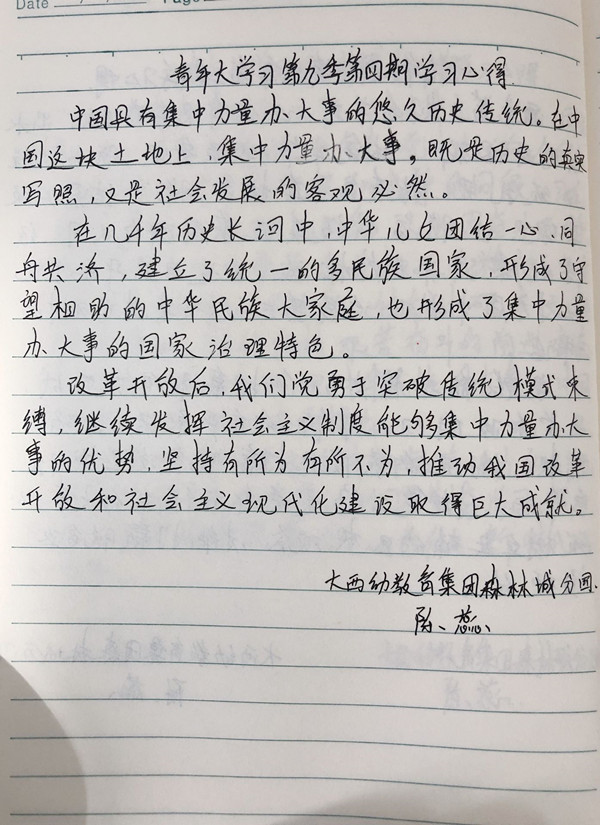 Date
Page
青年大学习第九季第四期学习心得
中国具有集中力量办大事的悠久历史传统。在中
国这块土地上,集中力量办大事。既是历史的真实
写照,又是社会发展的客观必然。
在几千年历史长河中,中华儿女团结一心、同
舟共济,建立了统一的多民族国家,形成了守
望相助的中华民族大家庭,也形成了集中力量
办大事的国家治理特色。
改革开放后,我们党勇于突破传统模式束
缚,继续发挥社会主义制度能够集中力量办大
事的优势,坚持有所为有所不为,推动我国改革
开放和社会主义现代化建设取得巨大成就。
大西幼教育集团森林城分园.
陈蕊